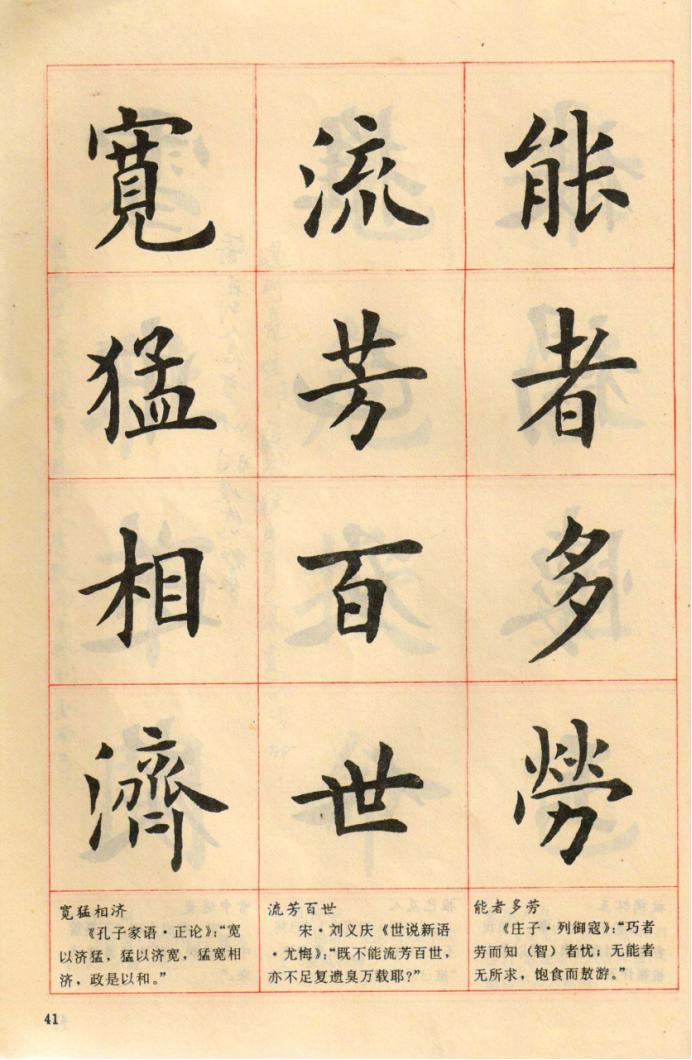 能者多勞
流芳百世
寬猛相濟
宽猛相济
《孔子家语·正论》：“宽
以济猛，猛以济宽，猛宽相
济，政是以和。”
流芳百世
宋·刘义庆《世说新语
·尤悔》：“既不能流芳百世，
亦不足复遗臭万载耶？”
能者多劳
《庄子·列御寇》：“巧者
劳而知（智）者忧；无能者
无所求，饱食而敖游。”
41